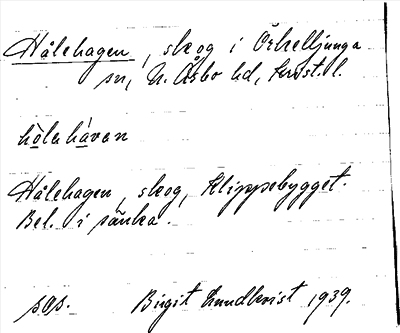 Hålehagen, skog i Örkelljunga
sn, N. Åsbo hd, Krist. l.
hòlahávan
Hålehagen, skog, Klippebygget.
Bel. i sänka.
sgs. Birgit Lundkvist 1939.